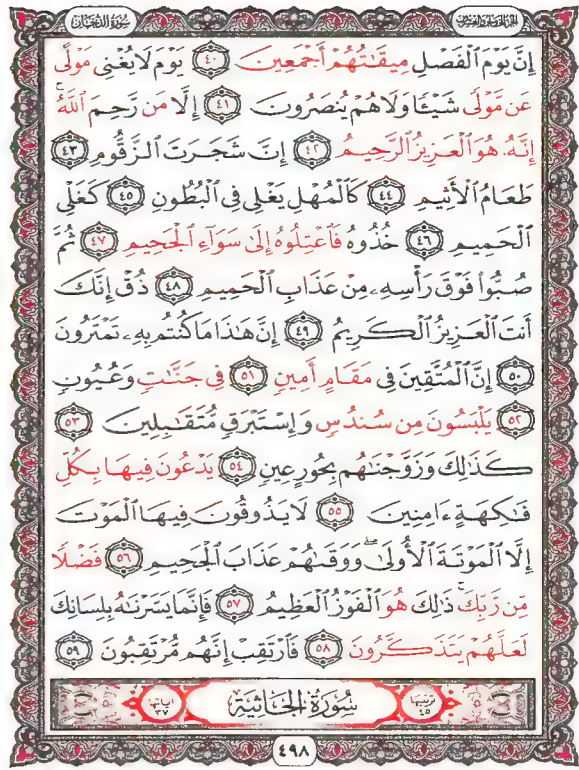 سُورَةُ الدُّخَانِ الجزء الخامس والعشرون
إِنَّ يَوْمَ ٱلْفَصْلِ مِيقَٰتُهُمْ أَجْمَعِينَ ٤٠ يَوْمَ لَا يُغْنِى مَوْلًى
عَن مَّوْلًى شَيْـًٔا وَلَا هُمْ يُنصَرُونَ ٤١ إِلَّا مَن رَّحِمَ ٱللَّهُ ۚ
إِنَّهُۥ هُوَ ٱلْعَزِيزُ ٱلرَّحِيمُ ٤٢ إِنَّ شَجَرَتَ ٱلزَّقُّومِ ٤٣
طَعَامُ ٱلْأَثِيمِ ٤٤ كَٱلْمُهْلِ يَغْلِى فِى ٱلْبُطُونِ ٤٥ كَغَلْىِ
ٱلْحَمِيمِ ٤٦ خُذُوهُ فَٱعْتِلُوهُ إِلَىٰ سَوَآءِ ٱلْجَحِيمِ ٤٧ ثُمَّ
صُبُّوا۟ فَوْقَ رَأْسِهِۦ مِنْ عَذَابِ ٱلْحَمِيمِ ٤٨ ذُقْ إِنَّكَ
أَنتَ ٱلْعَزِيزُ ٱلْكَرِيمُ ٤٩ إِنَّ هَٰذَا مَا كُنتُم بِهِۦ تَمْتَرُونَ
٥٠ إِنَّ ٱلْمُتَّقِينَ فِى مَقَامٍ أَمِينٍ ٥١ فِى جَنَّٰتٍ وَعُيُونٍ
٥٢ يَلْبَسُونَ مِن سُندُسٍ وَإِسْتَبْرَقٍ مُّتَقَٰبِلِينَ ٥٣
كَذَٰلِكَ وَزَوَّجْنَٰهُم بِحُورٍ عِينٍ ٥٤ يَدْعُونَ فِيهَا بِكُلِّ
فَٰكِهَةٍ ءَامِنِينَ ٥٥ لَا يَذُوقُونَ فِيهَا ٱلْمَوْتَ
إِلَّا ٱلْمَوْتَةَ ٱلْأُولَىٰ ۖ وَوَقَىٰهُمْ عَذَابَ ٱلْجَحِيمِ ٥٦ فَضْلًا
مِّن رَّبِّكَ ۚ ذَٰلِكَ هُوَ ٱلْفَوْزُ ٱلْعَظِيمُ ٥٧ فَإِنَّمَا يَسَّرْنَٰهُ بِلِسَانِكَ
لَعَلَّهُمْ يَتَذَكَّرُونَ ٥٨ فَٱرْتَقِبْ إِنَّهُم مُّرْتَقِبُونَ ٥٩
ترتيبها ٤٥ سُورَةُ الجَاثِيَةِ آياتها ٣٧
٤٩٨